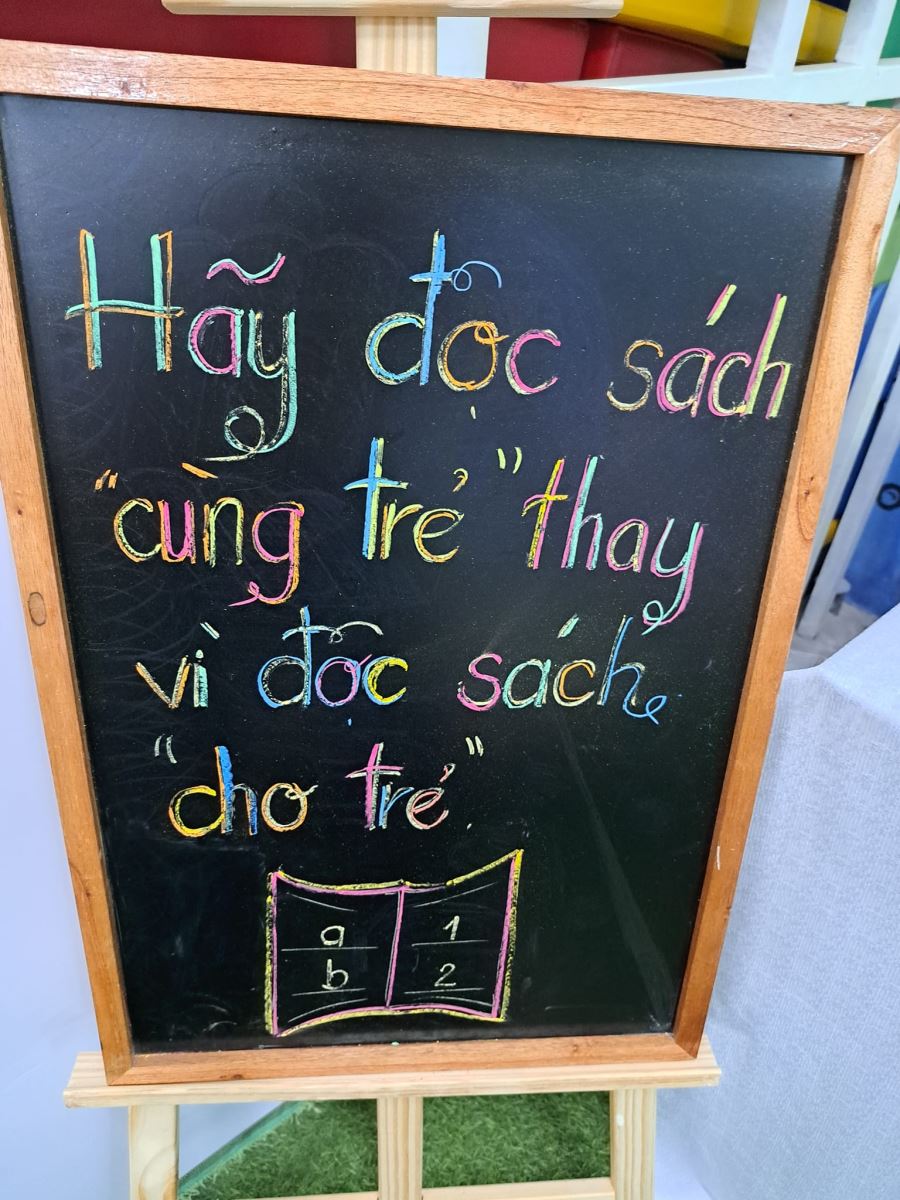 Hãy đọc sách
"cùng trẻ" thay
vì đọc sách
"cho trẻ".
a 1
b 2